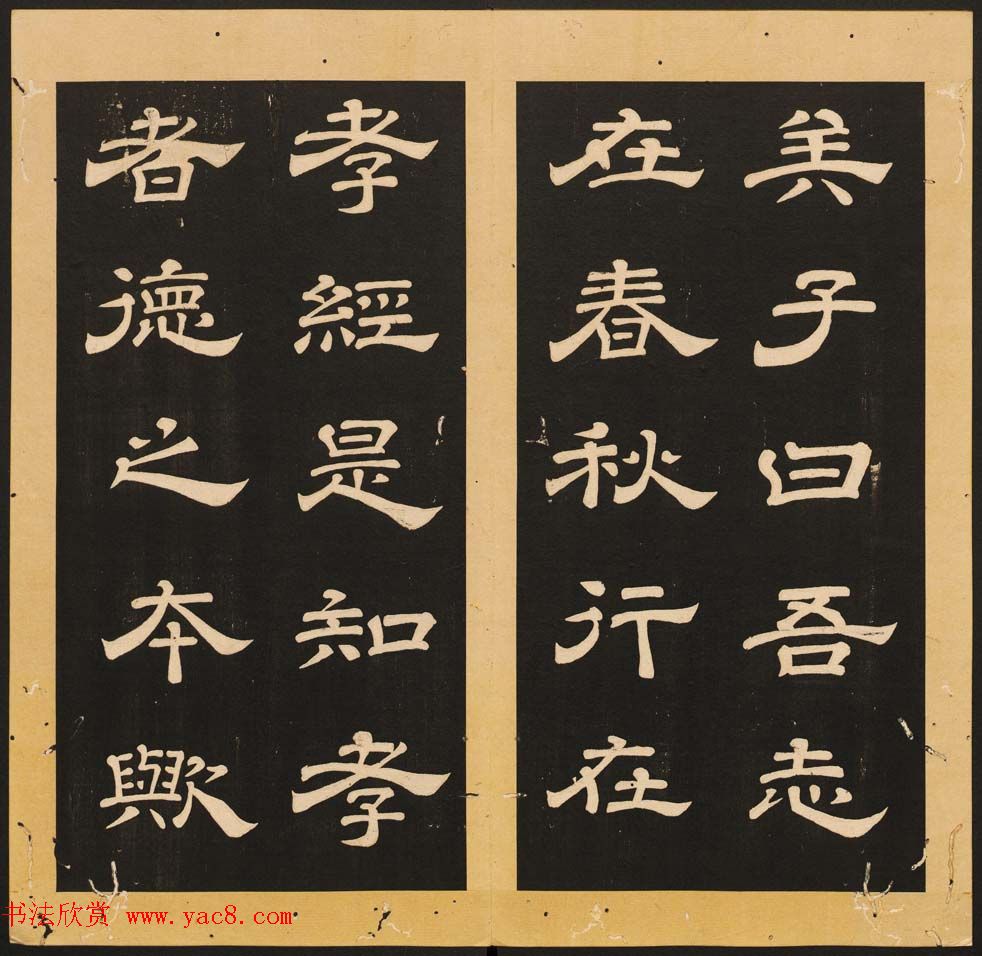 美子曰吾志
在春秋行在
孝經是知孝
者德之本歟
书法欣赏 www.yac8.com